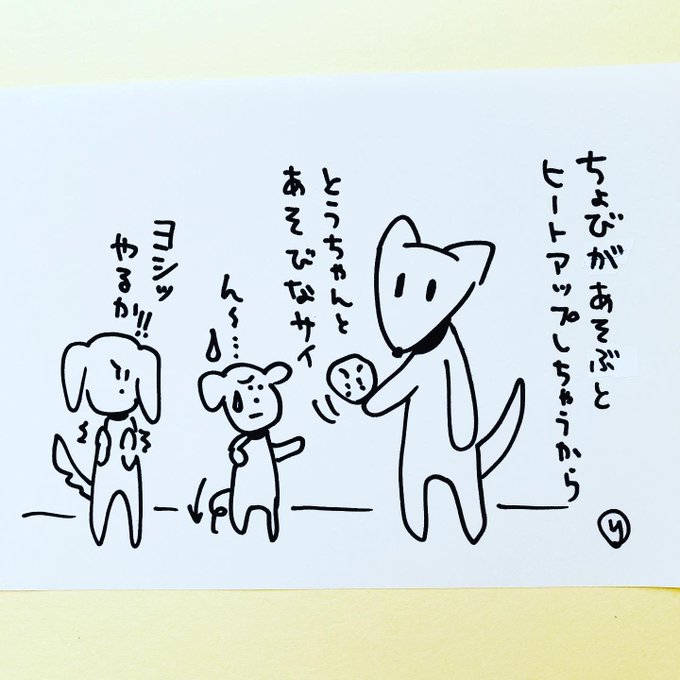 ちょびがあそぶと
ヒートアップしちゃうから
とうちゃんと
あそびなサイ
ん〜…
ヨシッ
やるか!!
り